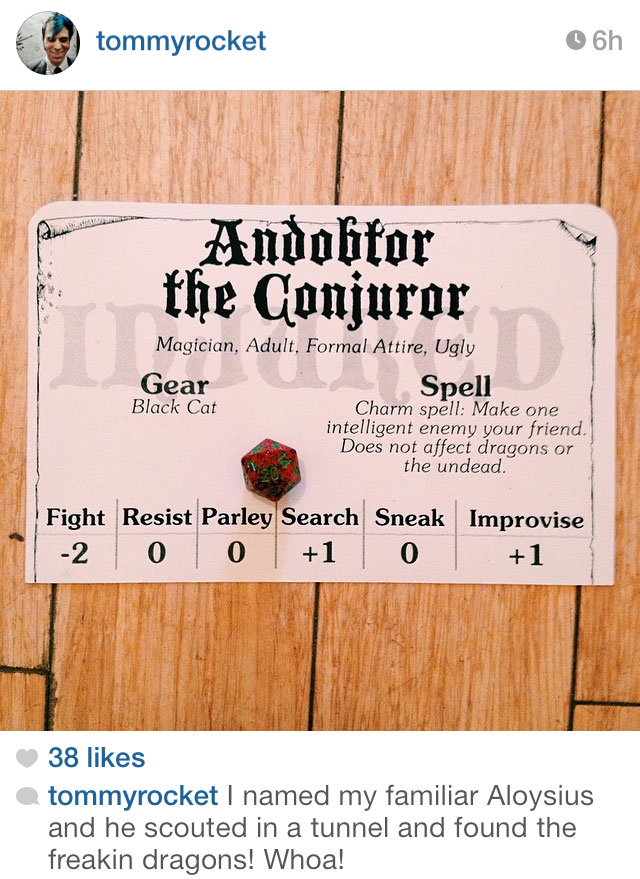 tommyrocket 6h
Andobtor
the Conjuror
INJURED
Magician, Adult, Formal Attire, Ugly
Gear
Black Cat
Spell
Charm spell: Make one
intelligent enemy your friend.
Does not affect dragons or
the undead.
20
Fight Resist Parley Search Sneak Improvise
-2 0 0 +1 0 +1
38 likes
tommyrocket I named my familiar Aloysius
and he scouted in a tunnel and found the
freakin dragons! Whoa!